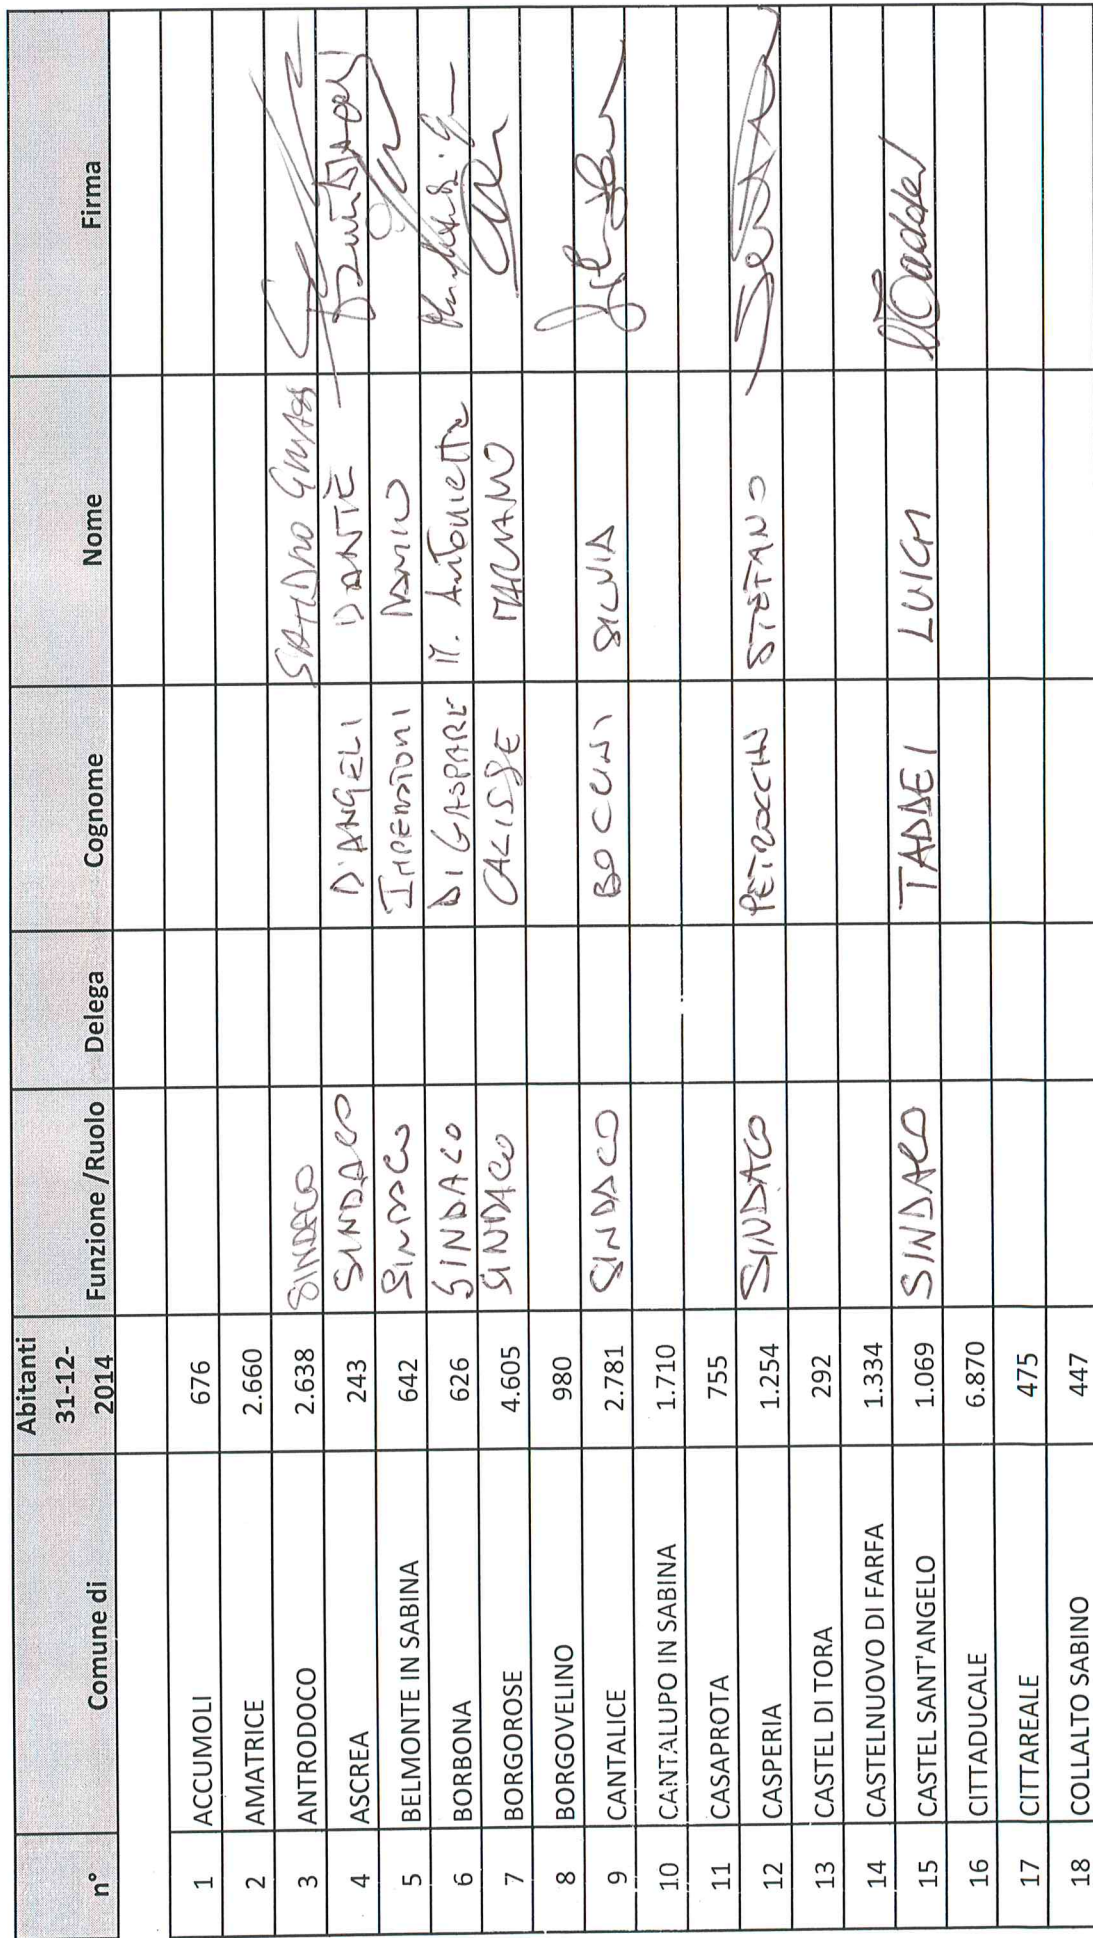 n° Comune di Abitanti 31-12-2014 Funzione /Ruolo Delega Cognome Nome Firma
1 ACCUMOLI 676
2 AMATRICE 2.660
3 ANTRODOCO 2.638 SINDACO
4 ASCREA 243 SINDACO D'ANGELI DANTE
5 BELMONTE IN SABINA 642 SINDACO
6 BORBONA 626 SINDACO DI GASPARE M. Antonietta
7 BORGOROSE 4.605 SINDACO CALISSE MARIANO
8 BORGOVELINO 980
9 CANTALICE 2.781 SINDACO BOCCINI SILVIA
10 CANTALUPO IN SABINA 1.710
11 CASAPROTA 755
12 CASPERIA 1.254 SINDACO PETROCCHI STEFANO
13 CASTEL DI TORA 292
14 CASTELNUOVO DI FARFA 1.334
15 CASTEL SANT'ANGELO 1.069 SINDACO TADDEI LUIGI Taddei
16 CITTADUCALE 6.870
17 CITTAREALE 475
18 COLLALTO SABINO 447